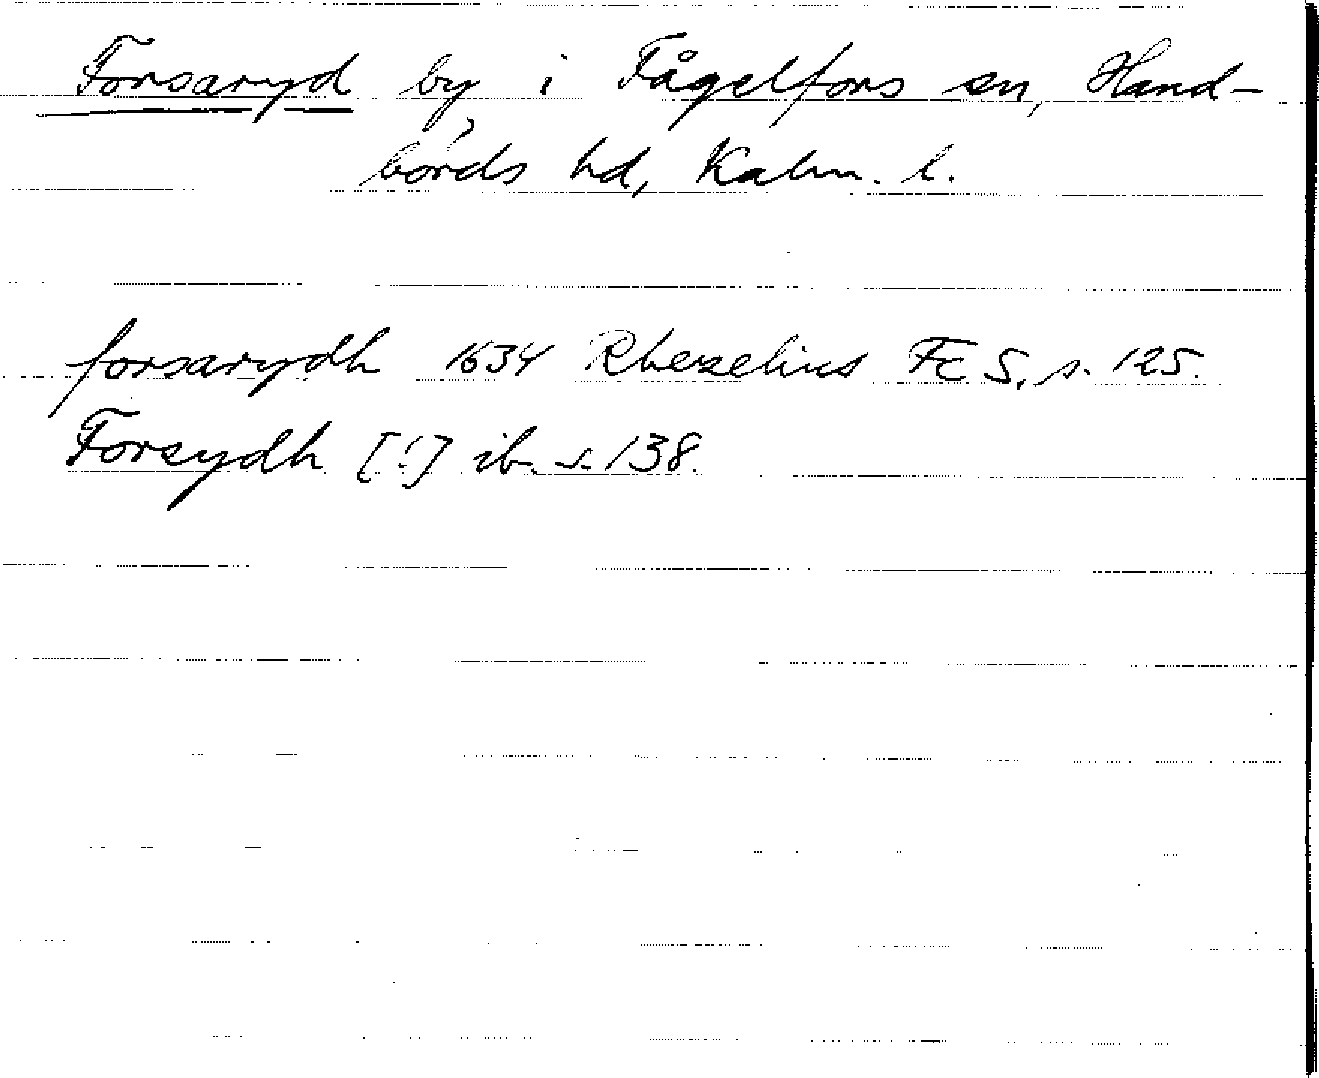 Forsaryd by i Fågelfors sn, Hand-
börds hd, Kalm. l.
forsarydh 1634 Rhezelius FES, s. 125.
Forsydh [!] ib. s. 138.